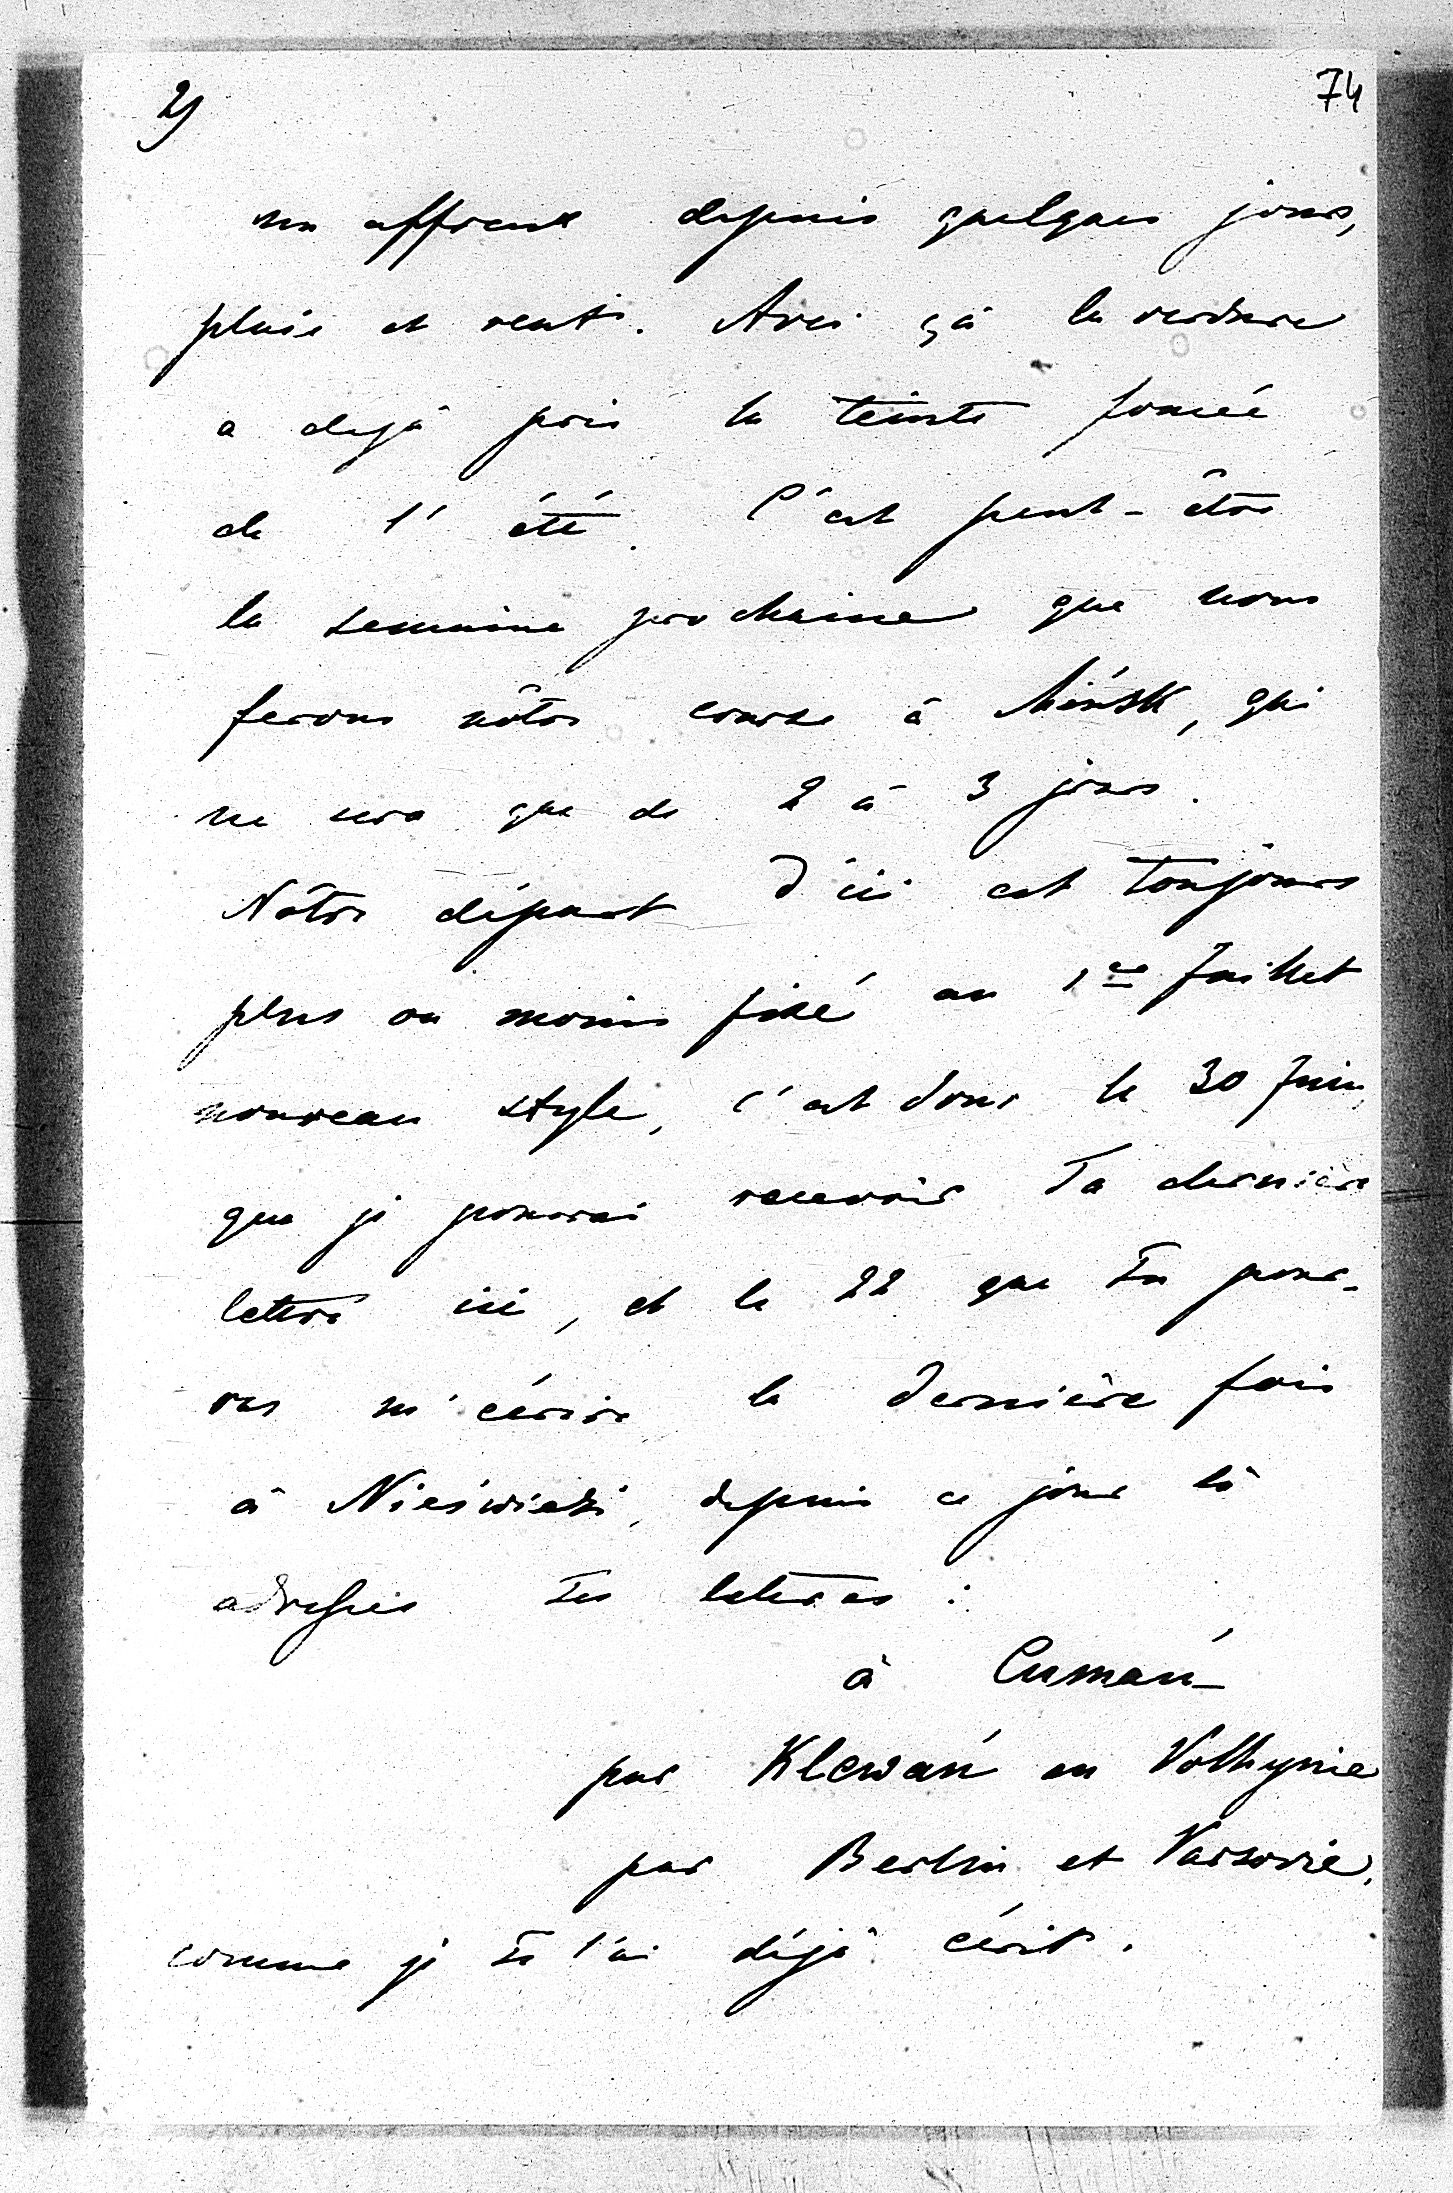 2)
74
nu affreux depuis quelques jours,
pluie et vents. Avec çà la verdure
a dejà pris la teinte foncée
de l'été. C'est peut-être
la semaine prochaine que nous
ferons nôtre course à Mińsk, qui
ne sera que de 2 à 3 jours.
Nôtre départ d'ici est toujours
plus ou moins fixé au 1er Juillet
nouveau style, c'est donc le 30 Juin
que je pourrai recevoir Ta dernière
lettre ici, et le 22 que Tu pour-
ras m'écrire la dernière fois
à Nieświeżi, depuis ce jour là
adresses Tes lettres :
à Cumań
par Klewań en Volhynie
par Berlin et Varsovie,
comme je Te l'ai déjà écrit.